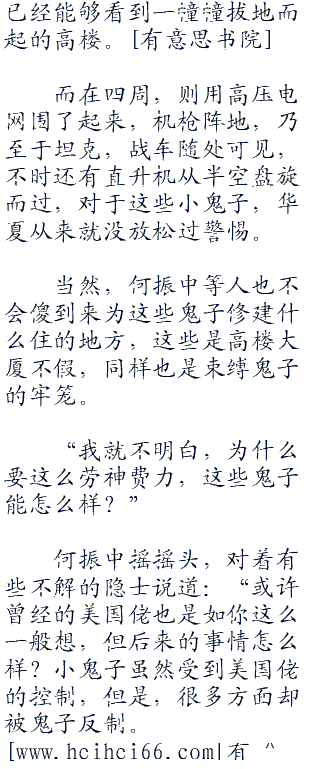 已经能够看到一幢幢拔地而
起的高楼。[有意思书院]
而在四周，则用高压电
网围了起来，机枪阵地，乃
至于坦克，战车随处可见，
不时还有直升机从半空盘旋
而过，对于这些小鬼子，华
夏从来就没放松过警惕。
当然，何振中等人也不
会傻到来为这些鬼子修建什
么住的地方，这些是高楼大
厦不假，同样也是束缚鬼子
的牢笼。
“我就不明白，为什么
要这么劳神费力，这些鬼子
能怎么样？”
何振中摇摇头，对着有
些不解的隐士说道：“或许
曾经的美国佬也是如你这么
一般想，但后来的事情怎么
样？小鬼子虽然受到美国佬
的控制，但是，很多方面却
被鬼子反制。
[www.hcihci66.com|有